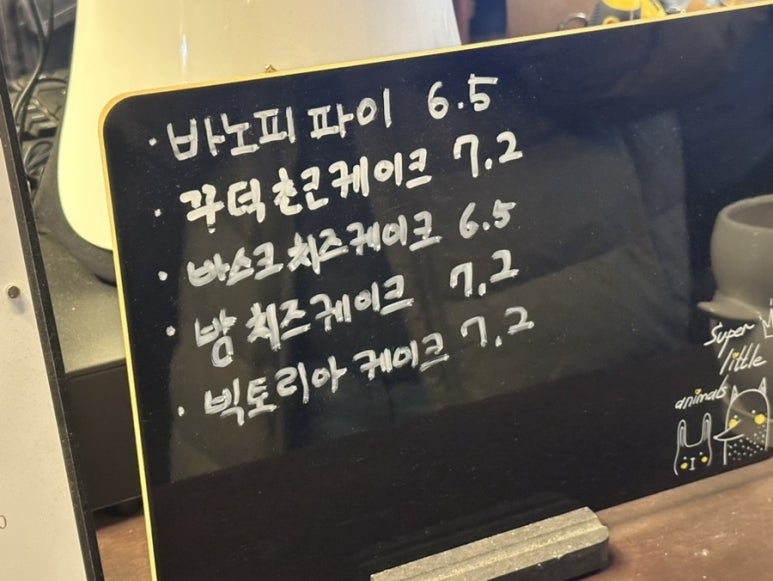 · 바노피 파이 6.5
· 꾸덕 초코케이크 7.2
· 바스크 치즈케이크 6.5
· 밤 치즈케이크 7.2
· 빅토리아 케이크 7.2
Super
little
animals